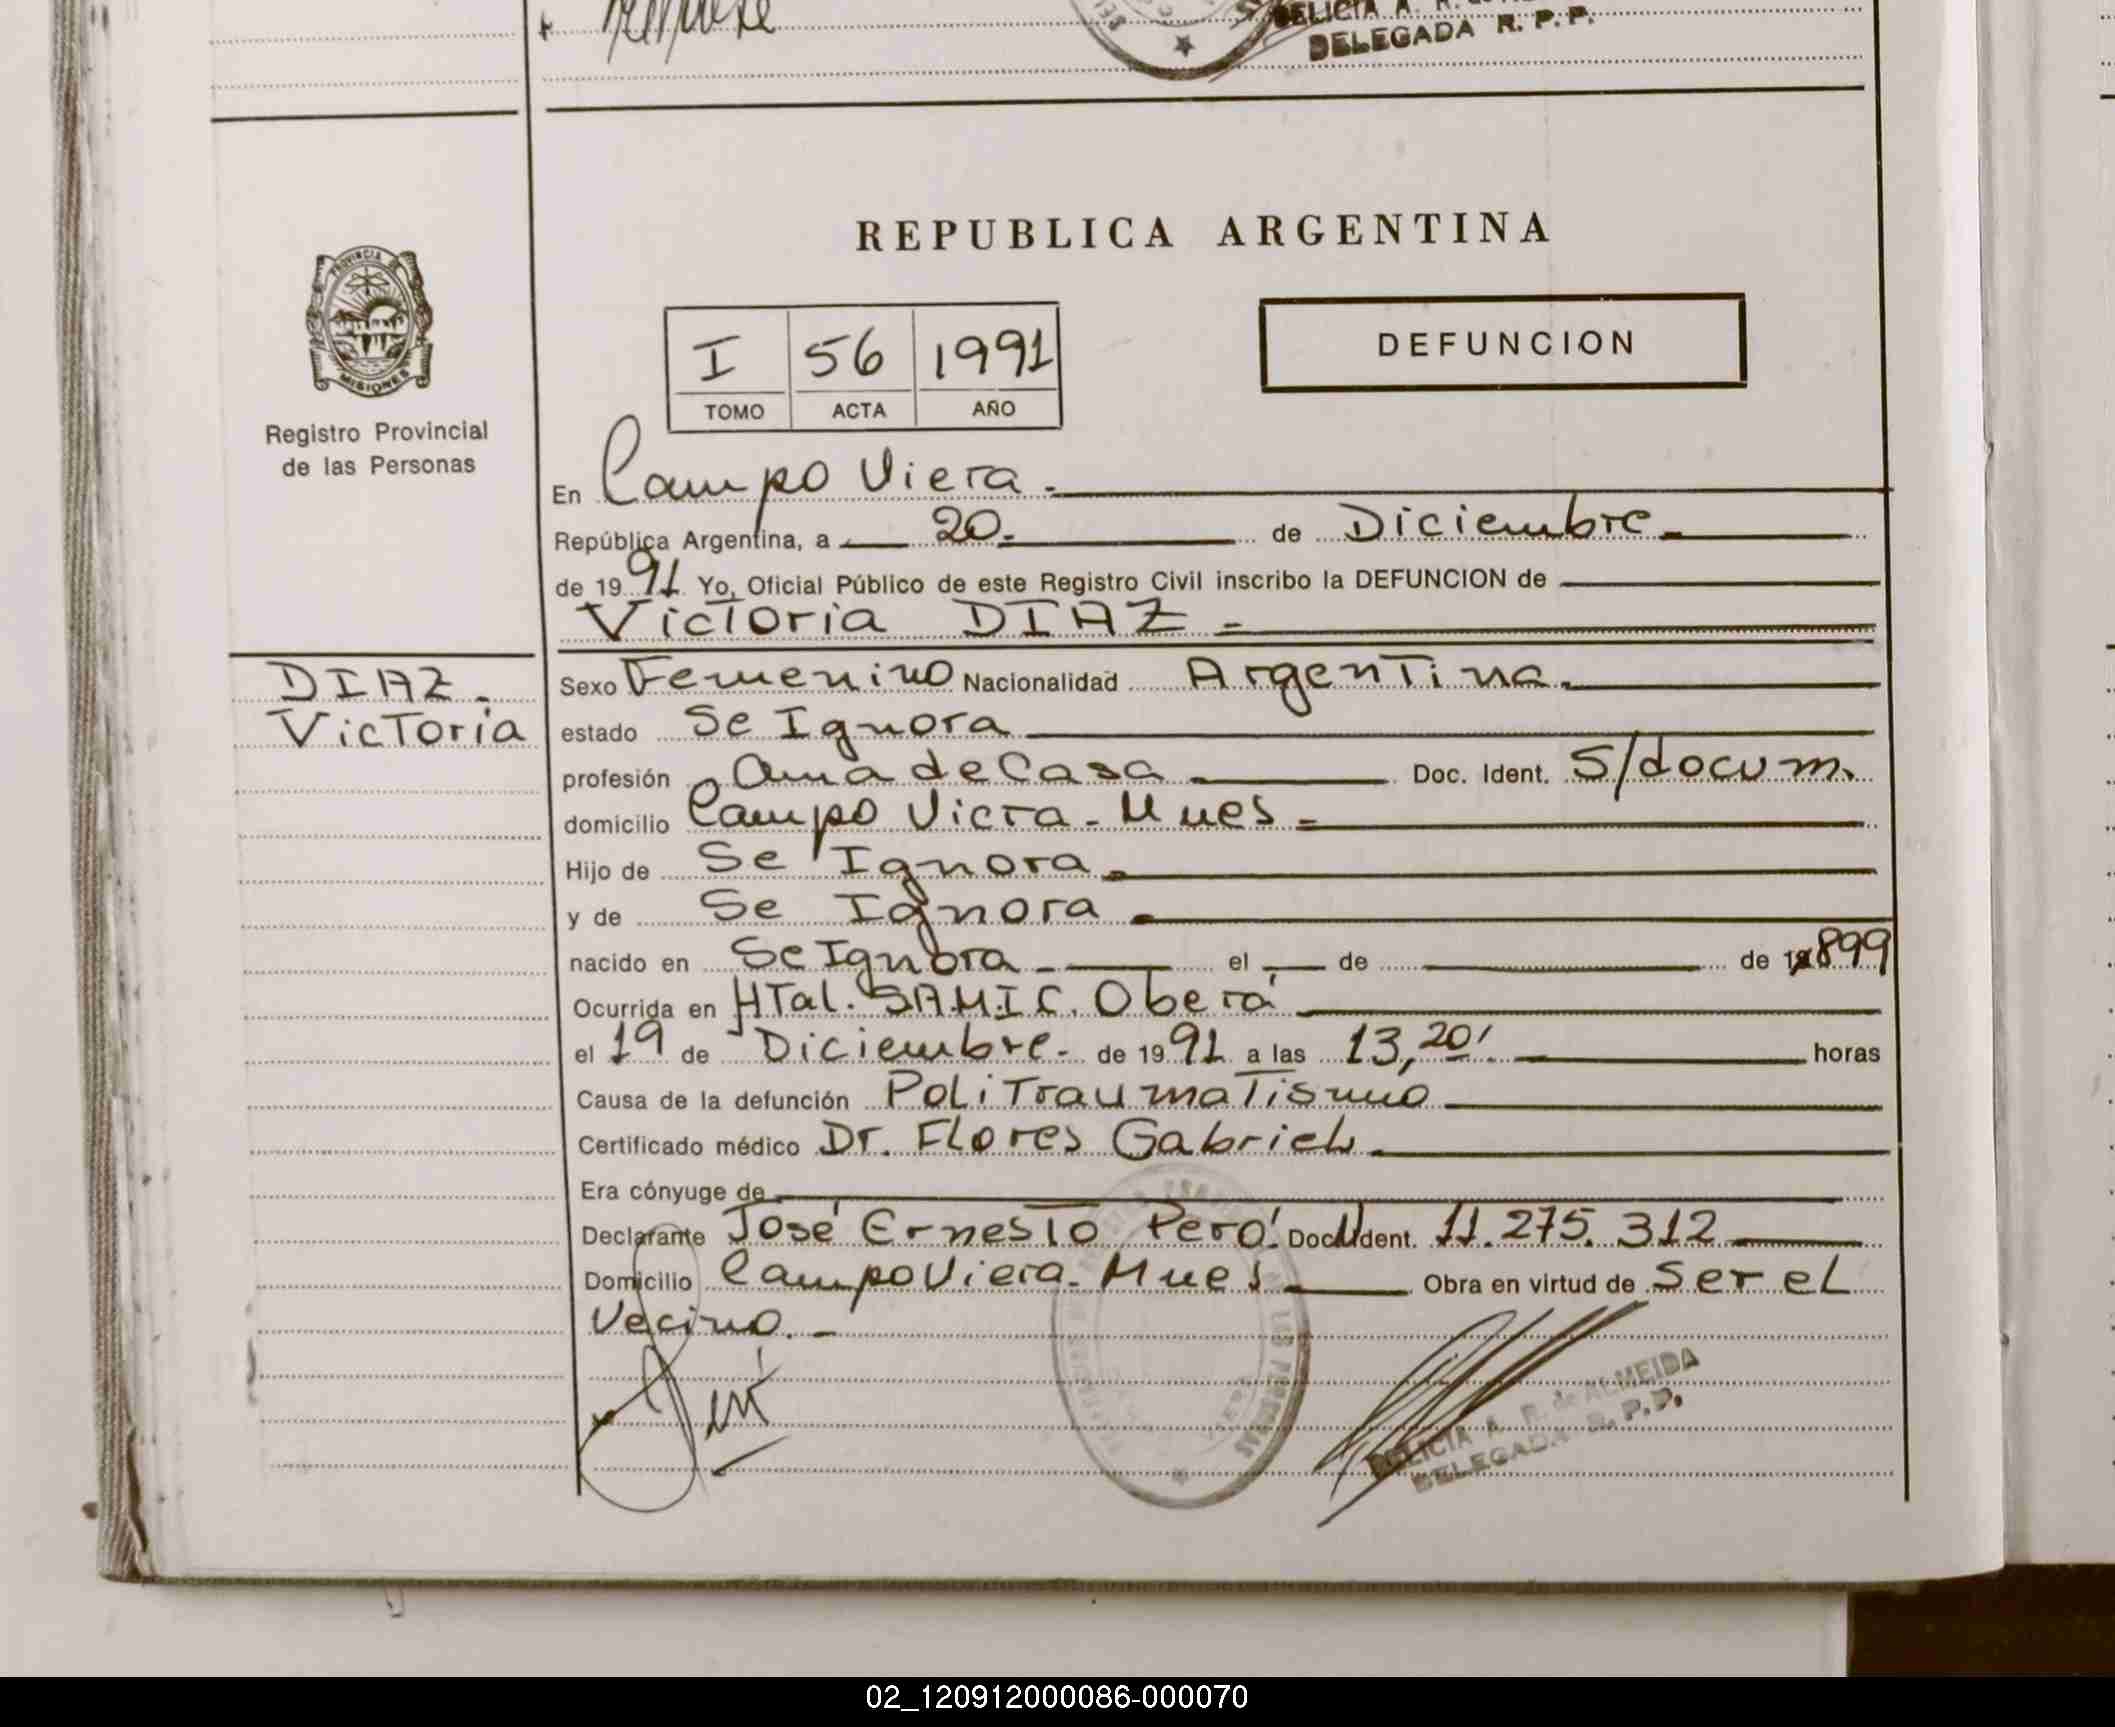 DELEGADA R. P. P.
REPUBLICA ARGENTINA
PROVINCIA DE
MISIONES
Registro Provincial
de las Personas
I 56 1991
TOMO ACTA AÑO
DEFUNCION
En Campo Viera.
República Argentina, a 20. de Diciembre
de 1991 Yo, Oficial Público de este Registro Civil inscribo la DEFUNCION de
Victoria DIAZ -
DIAZ.
Victoria
Sexo Femenino Nacionalidad Argentina.
estado Se Ignora
profesión Ama de Casa - Doc. Ident. S/docum.
domicilio Campo Viera - Mnes -
Hijo de Se Ignora
y de Se Ignora
nacido en Se Ignora - el de de 1899
Ocurrida en HTal. SAMIC. Oberá
el 19 de Diciembre - de 1991 a las 13,20' horas
Causa de la defunción PoliTraumaTismo
Certificado médico Dr. Flores Gabriel
Era cónyuge de
Declarante José Ernesto Peró. Doc. Ident. 11.275.312
Domicilio Campo Viera - Mnes Obra en virtud de Ser el
Vecino. -
DELICIA A. R. de ALMEIDA
DELEGADA R. P. P.
02_120912000086-000070